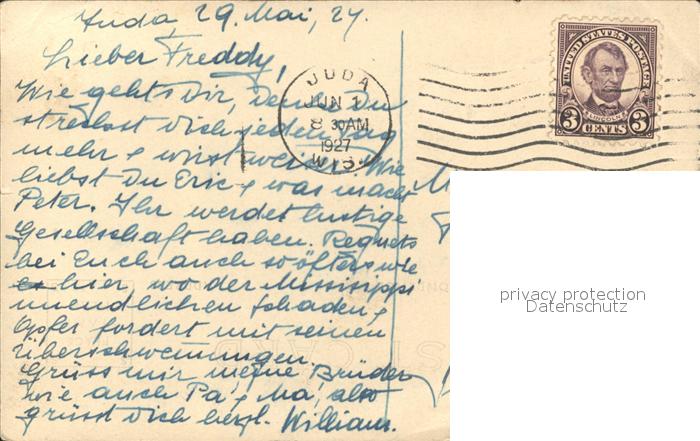 Juda, 29. Mai, 27.
Lieber Freddy,
Wie gehts Dir, denn Du
strebst Dich jeden Tag
mehr & wirst Wie
liebst Du Eric & was macht
Peter. Ihr werdet lustige
Gesellschaft haben. Regnets
bei Euch auch so öfters wie
hier, wo der Mississippi
unendlichen Schaden &
Opfer fordert mit seinen
Überschwemmungen.
Grüss mir meine Brüder
wie auch Pa & Ma, also
grüsst Dich herzl. William.
JUDA
JUN 1
8 30 AM
1927
WIS.
UNITED STATES POSTAGE
LINCOLN
3 CENTS 3
privacy protection
Datenschutz